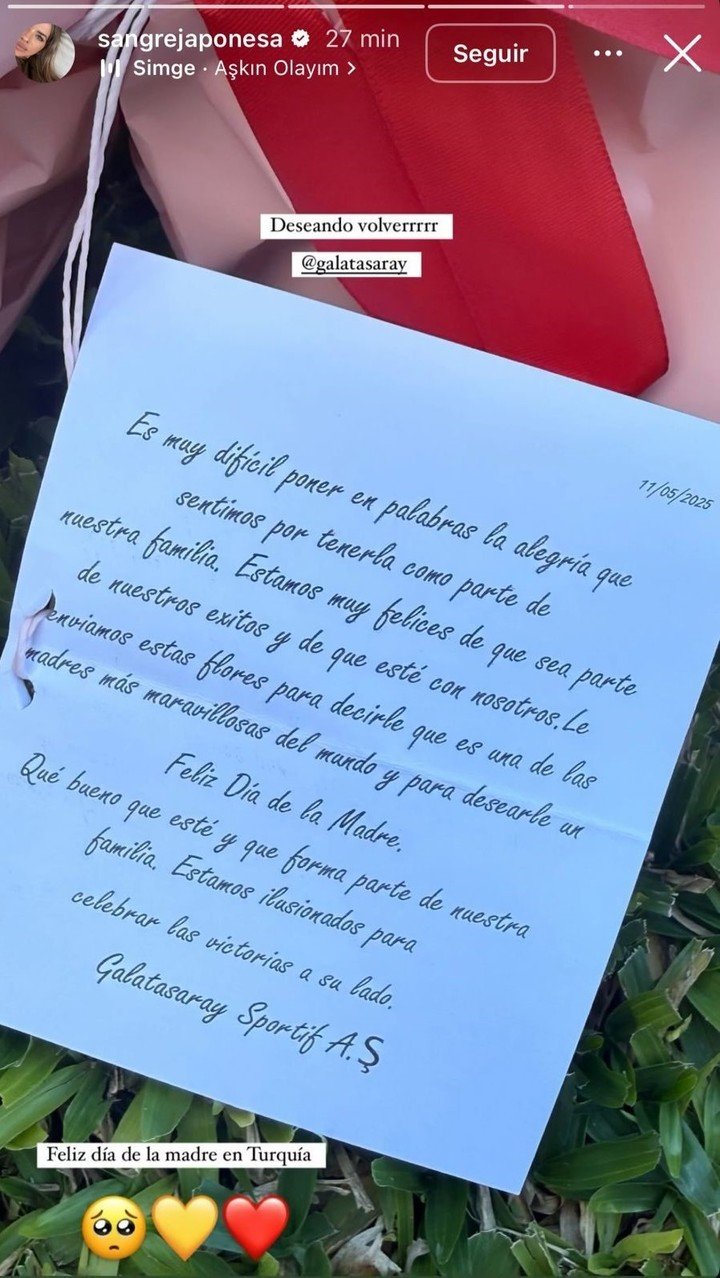 sangrejaponesa 27 min
Seguir
Simge · Aşkın Olayım >
Deseando volverrrrr
@galatasaray
11/05/2025
Es muy difícil poner en palabras la alegría que
sentimos por tenerla como parte de
nuestra familia. Estamos muy felices de que sea parte
de nuestros exitos y de que esté con nosotros.Le
enviamos estas flores para decirle que es una de las
madres más maravillosas del mundo y para desearle un
Feliz Día de la Madre.
Qué bueno que esté y que forma parte de nuestra
familia. Estamos ilusionados para
celebrar las victorias a su lado.
Galatasaray Sportif A.Ş
Feliz día de la madre en Turquía